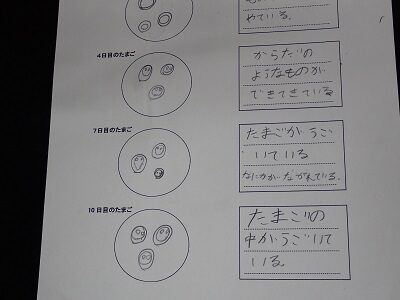 めている。
4日目のたまご
からだの
ようなものが
できてきている
7日目のたまご
たまごがうご
いている
なにかがながれている。
10日目のたまご
たまごの
中がうごいて
いる。